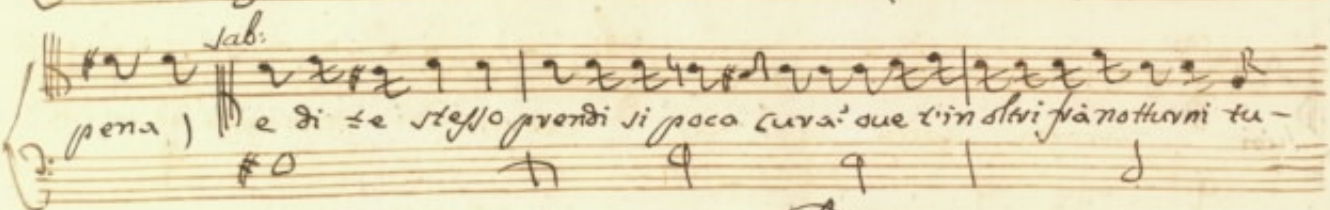 Sab:
pena ) e di te stesso prendi si poca cura? oue t'inoltri frà notturni tu-